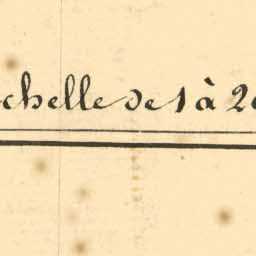 chelle de 1 à 20